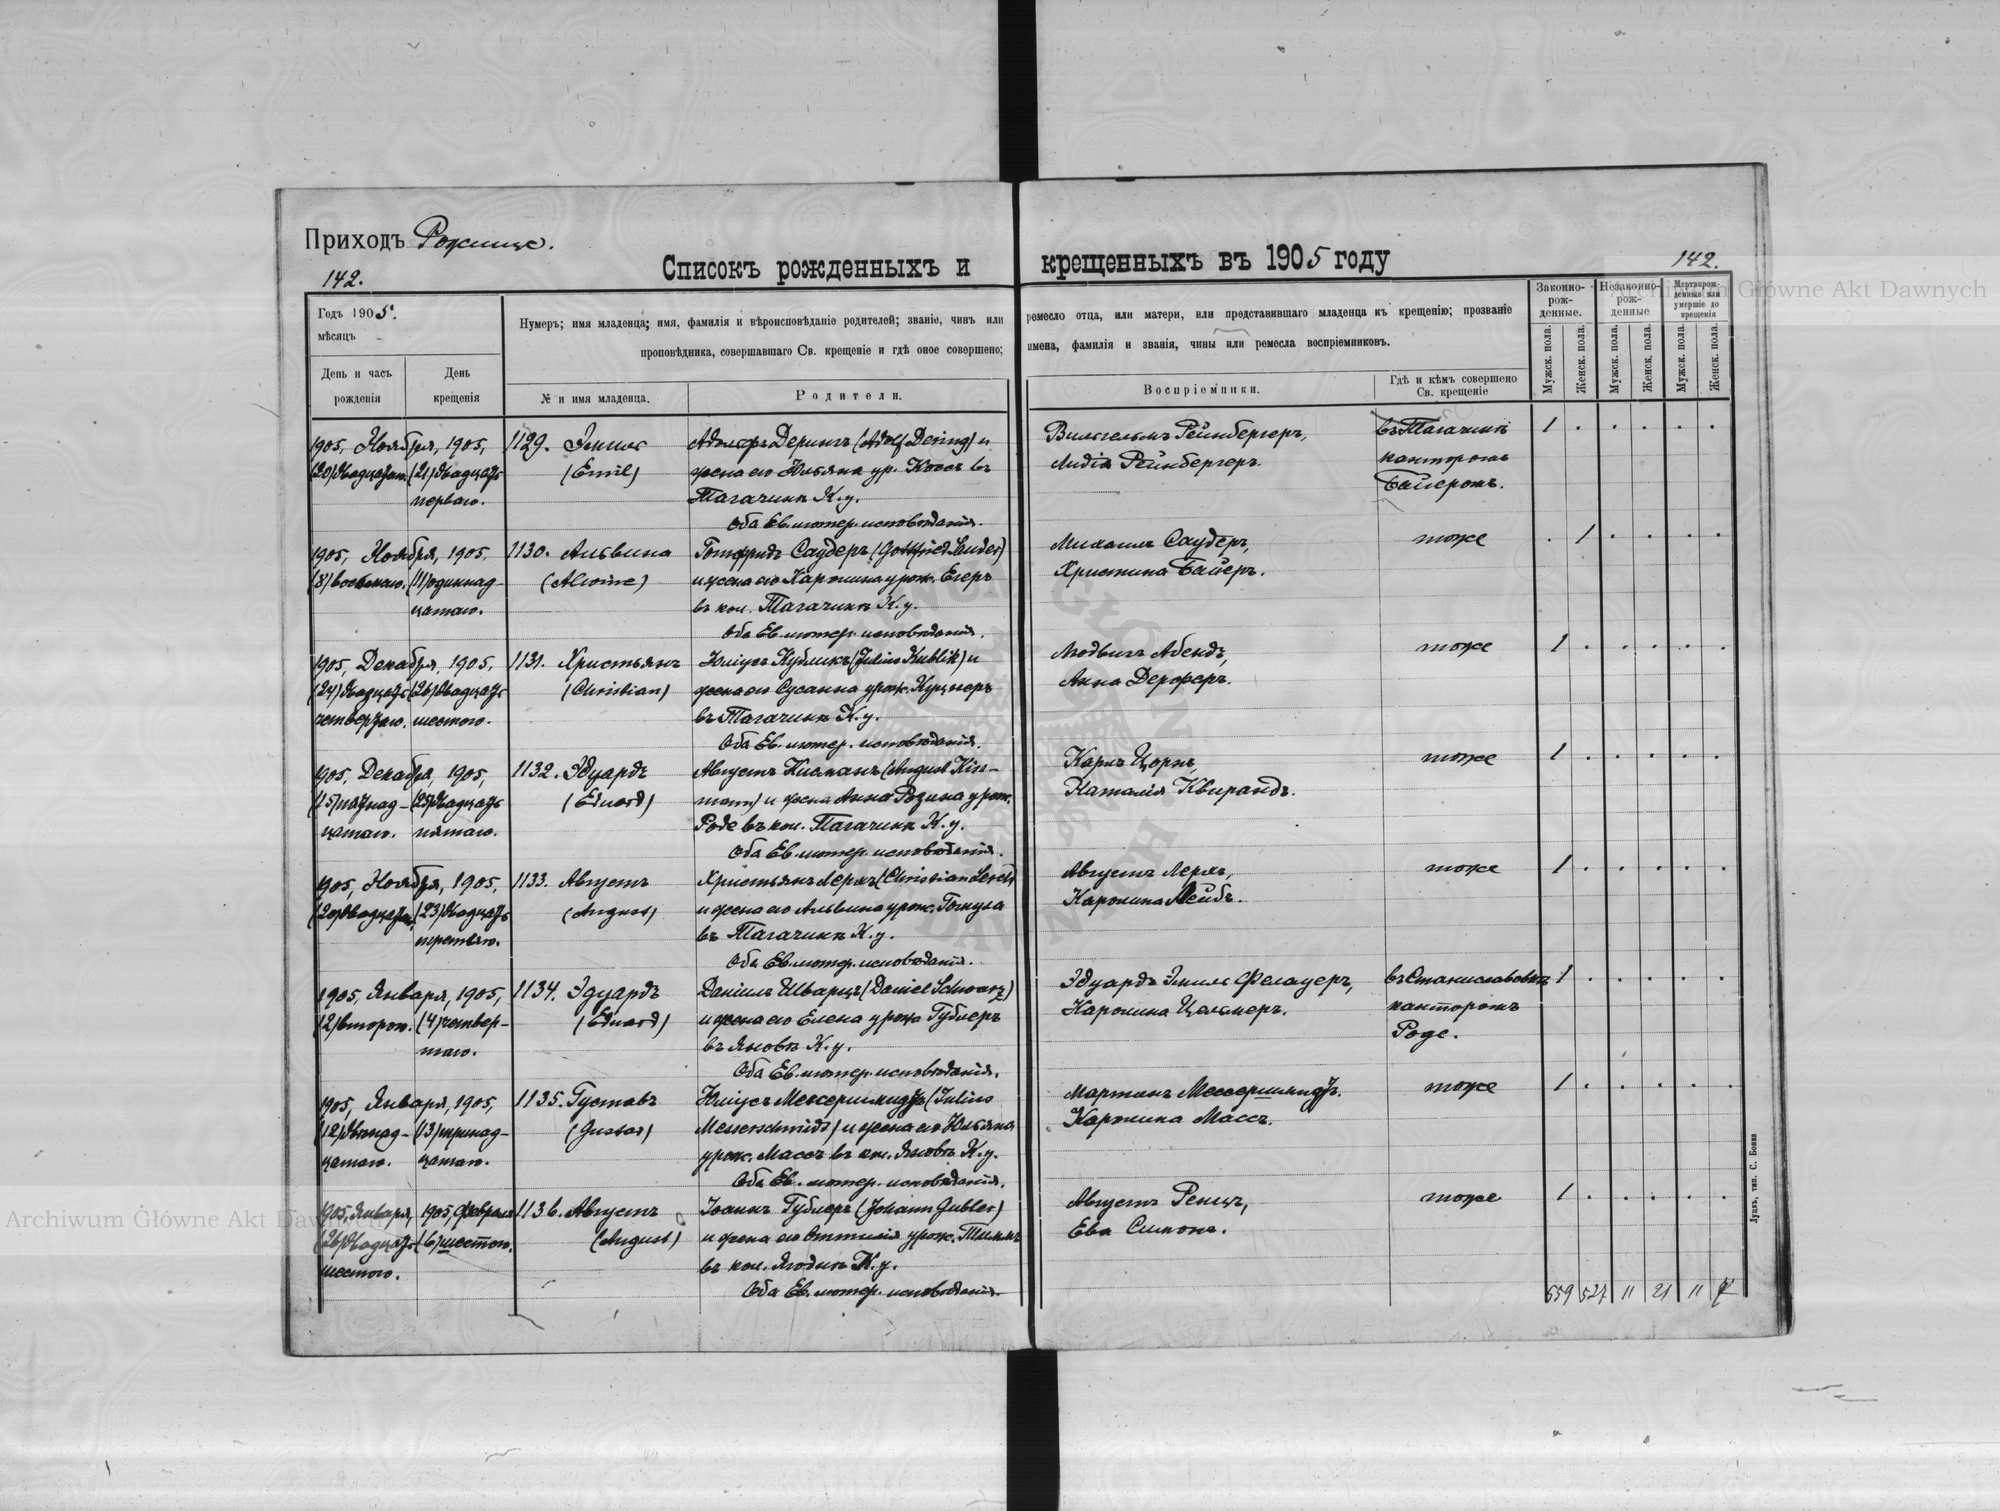 Приходъ Рожище.
142.
Списокъ рожденныхъ и крещенныхъ въ 1905 году
142.
Годъ 1905.
мѣсяцъ
День и часъ рожденія
День крещенія
Нумеръ; имя младенца; имя, фамилія и вѣроисповѣданіе родителей; званіе, чинъ или
проповѣдника, совершавшаго Св. крещеніе и гдѣ оное совершено;
№ и имя младенца.
Родители.
ремесло отца, или матери, или представившаго младенца къ крещенію; прозваніе
имена, фамилія и званія, чины или ремесла воспріемниковъ.
Воспріемники.
Гдѣ и кѣмъ совершено
Св. крещеніе
Законно-рож-денные.
Незаконно-рож-денные
Мертворож-денные или умершіе до крещенія
Мужск. пола.
Женск. пола.
Мужск. пола.
Женск. пола.
Мужск. пола.
Женск. пола.
1905, Ноября, 1905, 1129. Эмиль Адольфъ Дерингъ (Adolf Dering) и Вильгельмъ Рейнбергеръ, въ Тагачинѣ 1
(20) двадцатаго. (21) двадцать (Emil) жена его Юльяна ур. Коссъ въ Лидія Рейнбергеръ. канторомъ
перваго. Тагачинѣ К. у. Байеромъ.
Оба Ев. лютер. исповѣданія.
1905, Ноября, 1905, 1130. Альвина Готфридъ Саудеръ (Gottfried Sauder) Михаилъ Саудеръ, тоже 1
(8) восьмаго. (11) одиннад- (Alwine) и жена его Каролина урож. Егеръ Христина Байеръ.
цатаго. въ кол. Тагачинѣ К. у.
Оба Ев. лютер. исповѣданія.
1905, Декабря, 1905, 1131. Христьянъ Юліусъ Кубликъ (Julius Kublik) и Людвигъ Абендъ, тоже 1
(24) двадцать (26) двадцать (Christian) жена его Сусанна урож. Куцнеръ Анна Дерферъ.
четвертаго. шестого. въ Тагачинѣ К. у.
Оба Ев. лютер. исповѣданія.
1905, Декабря, 1905, 1132. Эдуардъ Августъ Кинманъ (August Kin- Карлъ Цорнъ, тоже 1
(15) пятнад- (25) двадцать (Eduard) mann) и жена Анна Розина урож. Наталія Квирандъ.
цатаго. пятаго. Роде въ кол. Тагачинѣ К. у.
Оба Ев. лютер. исповѣданія.
1905, Ноября, 1905, 1133. Августъ Христьянъ Лерхъ (Christian Lerch) Августъ Лерхъ, тоже 1
(20) двадцатаго. (23) двадцать (August) и жена его Альвина урож. Гомула Каролина Лейбъ.
третьяго. въ Тагачинѣ К. у.
Оба Ев. лютер. исповѣданія.
1905, Января, 1905, 1134. Эдуардъ Даніилъ Шварцъ (Daniel Schwarz) Эдуардъ Эмиль Фелауеръ, въ Станиславовкѣ 1
(2) второго. (4) четвер- (Eduard) и жена его Елена урож. Гублеръ Каролина Цельмеръ. канторомъ
таго. въ Яновкѣ К. у. Роде.
Оба Ев. лютер. исповѣданія.
1905, Января, 1905, 1135. Густавъ Юліусъ Мессершмидтъ (Julius Мартинъ Мессершмидтъ. тоже 1
(12) двѣнад- (13) тринад- (Gustav) Messerschmidt) и жена его Юльяна Каролина Массъ.
цатаго. цатаго. урож. Массъ въ кол. Яновкѣ К. у.
Оба Ев. лютер. исповѣданія.
1905, Января, 1905, Февраля 1136. Августъ Іоаннъ Гублеръ (Johann Gubler) Августъ Ренцъ, тоже 1
(26) двадцать (6) шестого. (August) и жена его Оттилія урож. Тиммъ Ева Симонъ.
шестого. въ кол. Ягодинѣ К. у.
Оба Ев. лютер. исповѣданія.
559 527 11 21 11 7
Луцкъ, тип. С. Бонка
Archiwum Główne Akt Dawnych
Archiwum Główne Akt Dawnych